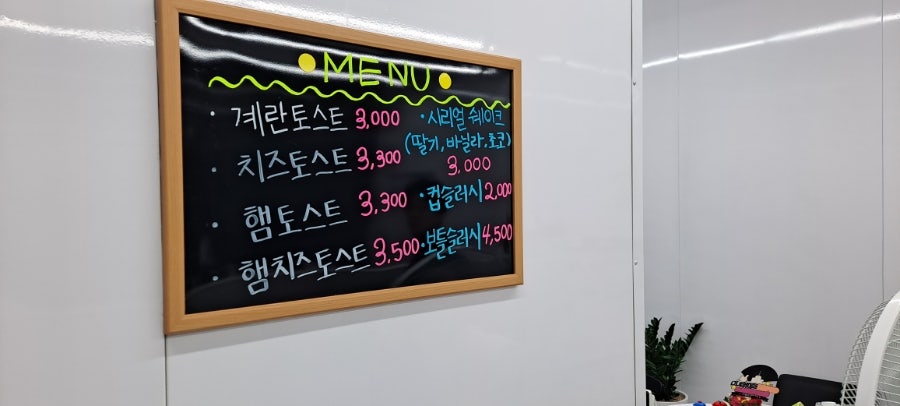 •MENU•
• 계란토스트 3,000
• 치즈토스트 3,300
• 햄토스트 3,300
• 햄치즈토스트 3,500
• 시리얼 쉐이크
(딸기, 바닐라, 초코)
3,000
• 컵슬러시 2,000
• 보틀슬러시 4,500